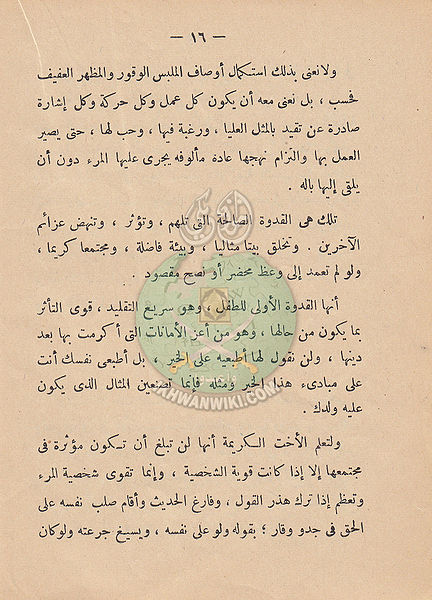 — ١٦ —
ولا نعنى بذلك استكمال أوصاف الملبس الوقور والمظهر العفيف
فحسب ، بل نعنى معه أن يكون كل عمل وكل حركة وكل إشارة
صادرة عن تقيد بالمثل العليا ، ورغبة فيها ، وحب لها ، حتى يصير
العمل بها والتزام نهجها عاده مألوفه يجرى عليها المرء دون أن
يلقى إليها باله .
تلك هى القدوة الصالحة التى تلهم ، وتؤثر ، وتنهض عزائم
الآخرين . وتخلق بيتا مثاليا ، وبيئة فاضلة ، ومجتمعا كريما ،
ولو لم تعمد إلى وعظ محضر أو نصح مقصود .
أنها القدوة الأولى للطفل ، وهو سريع التقليد ، قوى التأثر
بما يكون من حالها ، وهو من أعز الأمانات التى أكرمت بها بعد
دينها ، ولن نقول لها أطبعيه على الخير ، بل أطبعى نفسك أنت
على مبادىء هذا الخير ومثله فإنما تصنعين المثال الذى يكون
عليه ولدك .
ولتعلم الأخت الكريمة أنها لن تبلغ أن تكون مؤثرة فى
مجتمعها إلا إذا كانت قوية الشخصية ، وإنما تقوى شخصية المرء
وتعظم إذا ترك هذر القول ، وفارغ الحديث وأقام صلب نفسه على
الحق فى جدو وقار ؛ بقوله ولو على نفسه ، ويسيغ جرعته ولوكان
IKHWANWIKI.COM